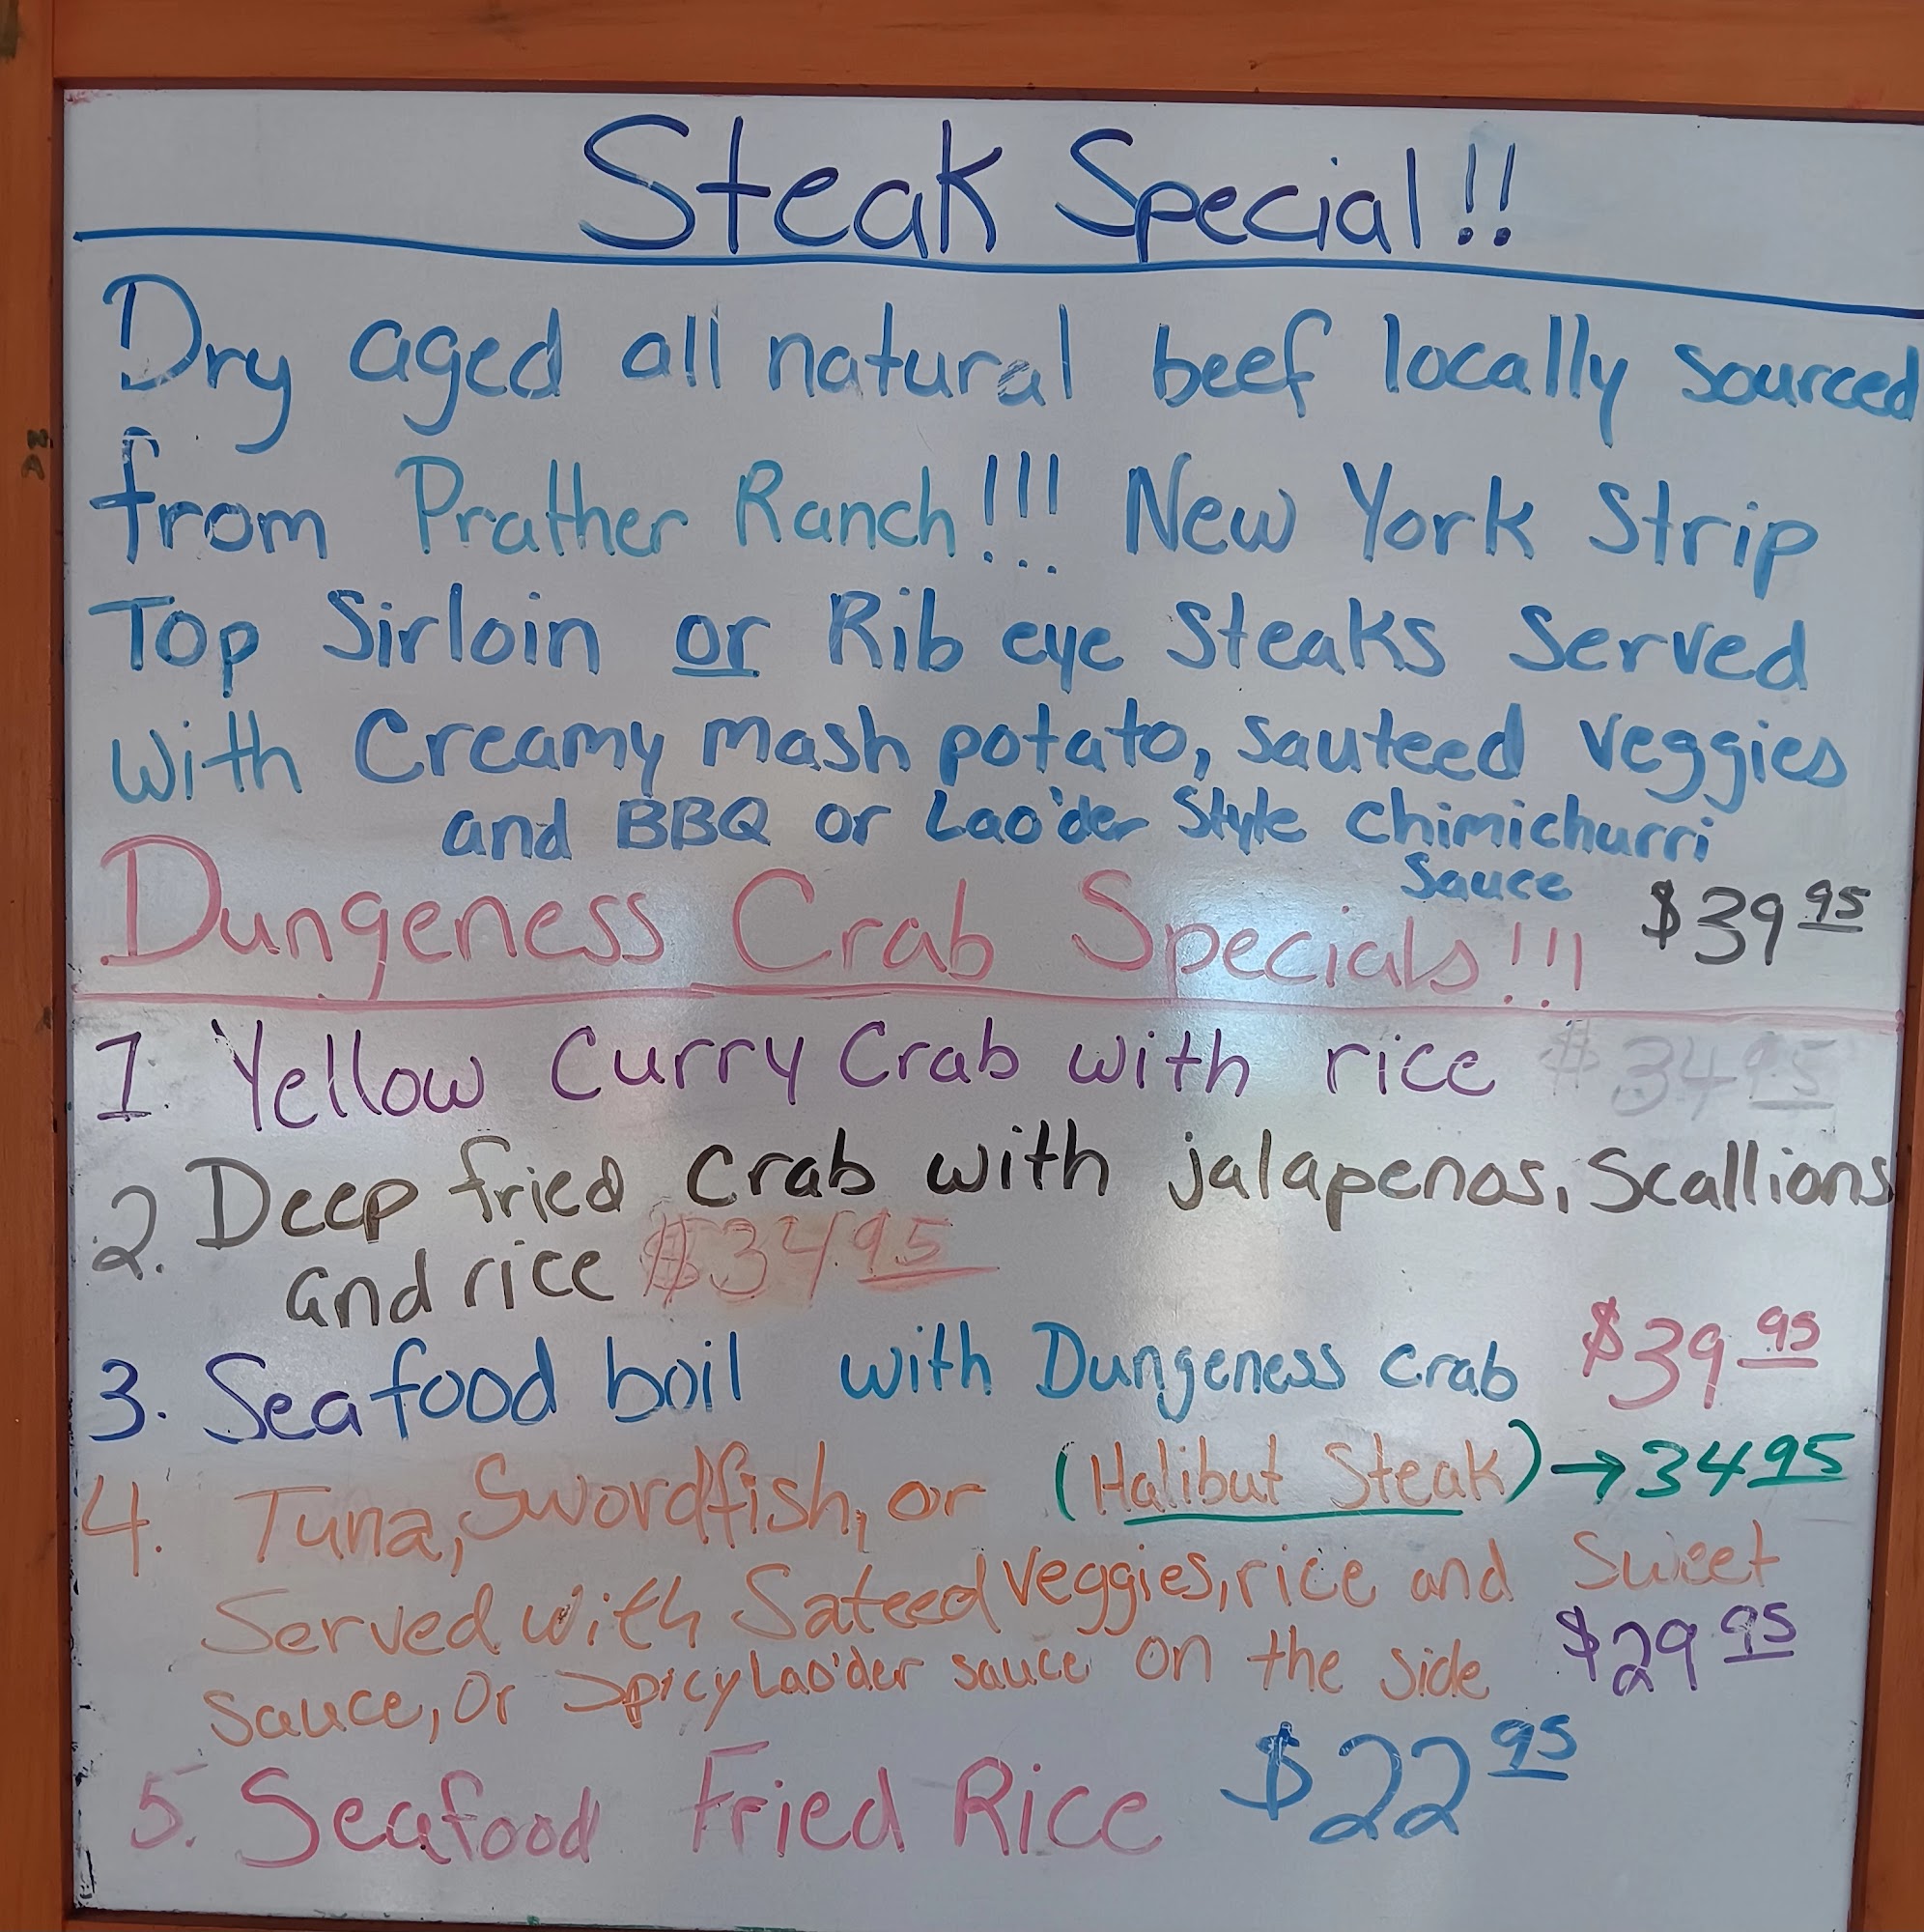 Steak Special!!
Dry aged all natural beef locally sourced
from Prather Ranch!!! New York Strip
Top Sirloin or Rib eye Steaks Served
with Creamy mash potato, sauteed veggies
and BBQ or Lao'der Style Chimichurri
Sauce
Dungeness Crab Specials!!! $39 95
1. Yellow Curry Crab with rice $34 95
2. Deep fried crab with jalapenos, Scallions
and rice $34 95
3. Seafood boil with Dungeness crab $39 95
4. Tuna, Swordfish, or (Halibut Steak) → 34 95
Served with Sateed veggies, rice and Sweet
sauce, Or Spicy Lao'der sauce on the side $29 95
5. Seafood Fried Rice $22 95